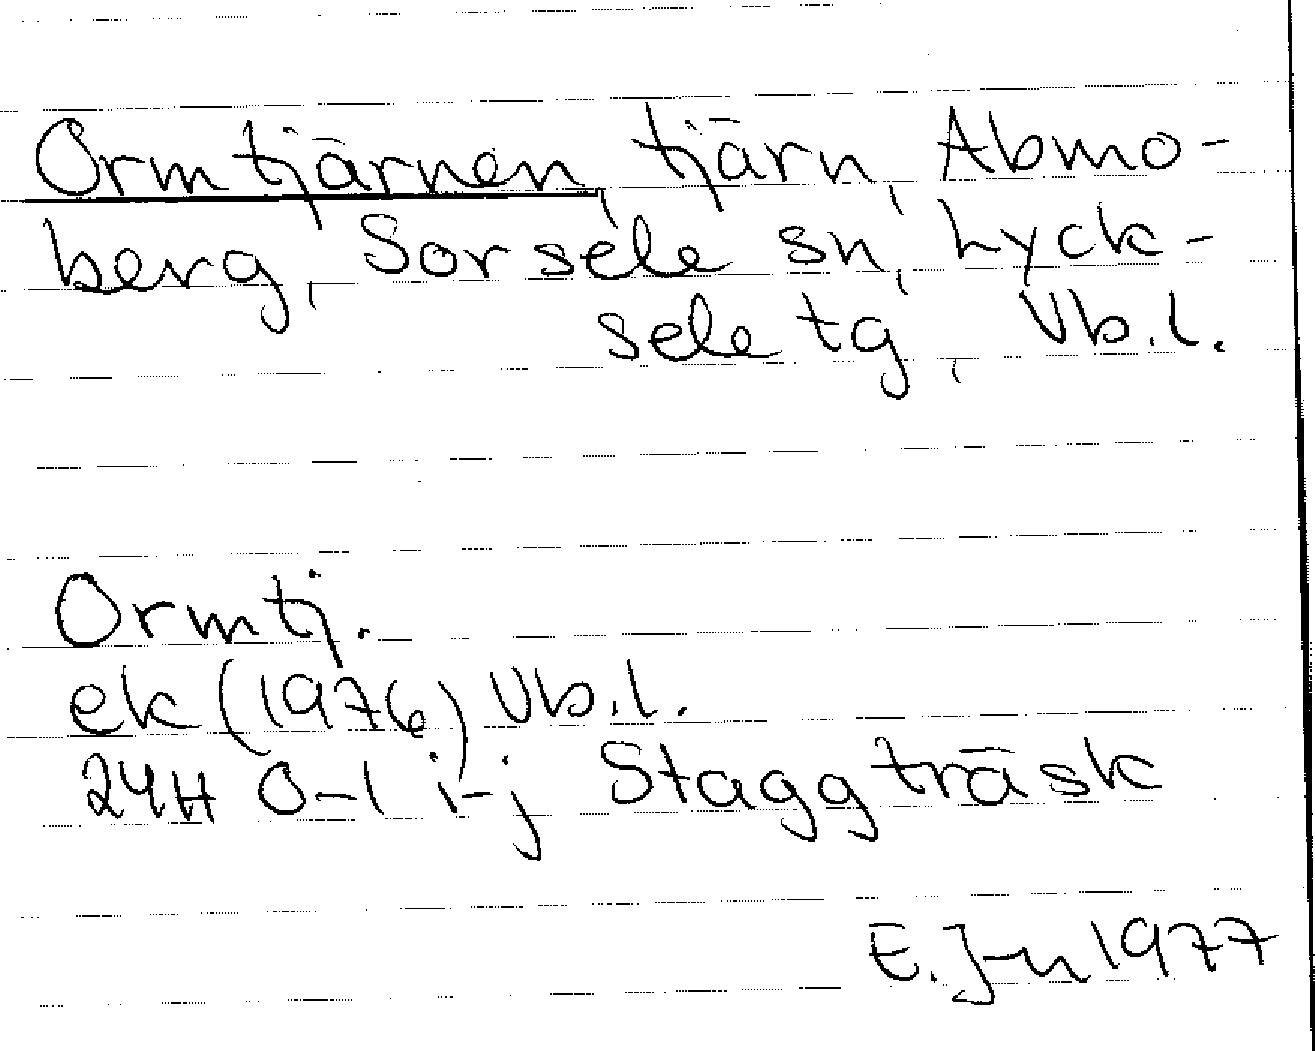 Ormtjärnen, tjärn, Abmo-
berg, Sorsele sn, Lyck-
sele tg, Vb.l.
Ormtj.
ek (1976) Vb.l.
24H 0-1 i-j Staggträsk
E. J-n 1977